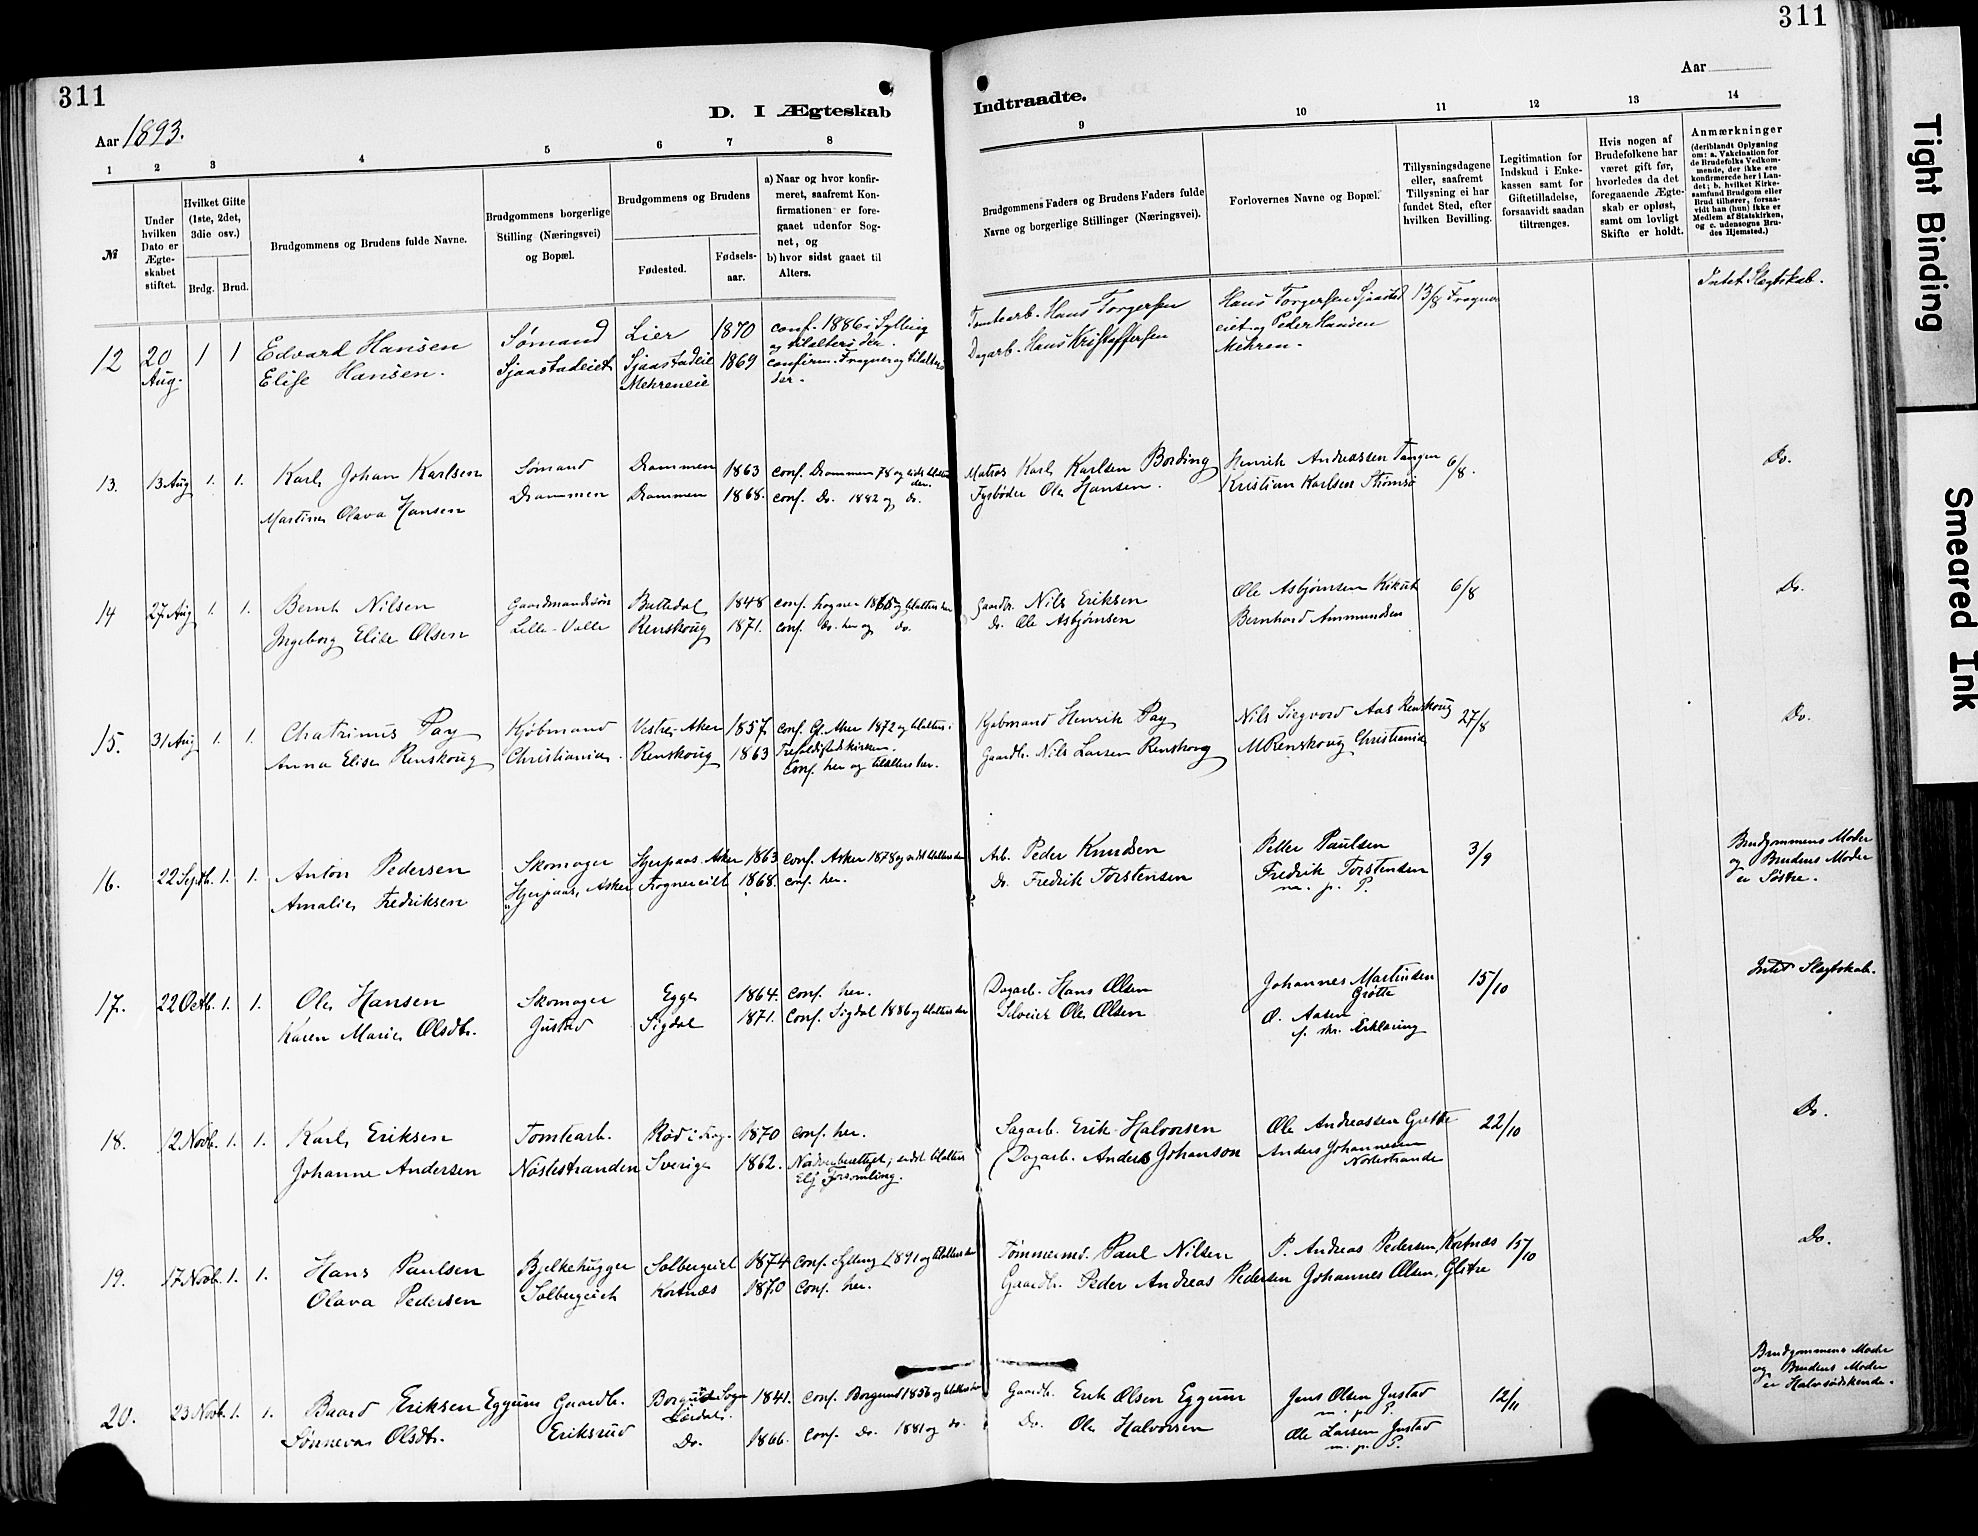 311
311
Aar 1893.
D. I Ægteskab
Indtraadte.
Aar
1 2 3 4 5 6 7 8 9 10 11 12 13 14
№
Under hvilken Dato er Ægteskabet stiftet.
Hvilket Gifte (1ste, 2det, 3die osv.)
Brdg. Brud.
Brudgommens og Brudens fulde Navne.
Brudgommens borgerlige Stilling (Næringsvei) og Bopæl.
Brudgommens og Brudens
Fødested.
Fødsels-aar.
a) Naar og hvor konfirmeret, saafremt Konfirmationen er foregaaet udenfor Sognet, og
b) hvor sidst gaaet til Alters.
Brudgommens Faders og Brudens Faders fulde Navne og borgerlige Stillinger (Næringsvei).
Forlovernes Navne og Bopæl.
Tillysningsdagene eller, saafremt Tillysning ei har fundet Sted, efter hvilken Bevilling.
Legitimation for Indskud i Enkekassen samt for Giftetilladelse, forsaavidt saadan tiltrænges.
Hvis nogen af Brudefolkene har været gift før, hvorledes da det foregaaende Ægteskab er opløst, samt om lovligt Skifte er holdt.
Anmærkninger (deriblandt Oplysning om: a. Vakcination for de Brudefolks Vedkommende, der ikke ere konfirmerede her i Landet; b. hvilket Kirkesamfund Brudgom eller Brud tilhører, forsaavidt han (hun) ikke er Medlem af Statskirken, og c. udensogns Brudes Hjemsted.)
12 20 Aug. 1 1 Edvard Hansen Sømand Lier 1870 conf. 1886 i Sylling og tilalters der. Tomtearb. Hans Torgersen Hans Torgersen Sjaastad 13/8 Intet Slegtskab.
Elise Hansen. Sjaastadeiet Sjaastadeie Mehreneie 1869 confirm. Frogner og tilalters der. Dagarb. Hans Kristoffersen eiet og Peder Hansen Mehren.
13. 13 Aug 1. 1. Karl Johan Karlsen Sømand Drammen 1863 conf. Drammen 78 og Matros Karl Karlsen Bording Henrik Andreassen Tangen 6/8. Do.
Martine Olava Hansen Drammen Drammen 1868. conf. Do. 1882 og do. Fyrbøder Ole Hansen. Kristian Karlsen Strømsø
14 27 Aug 1. 1. Bernh. Nilsen Gaardmandssøn 1848 conf. Frogner 1865 og tilalters her Gaardbr. Nils Eriksen Ole Asbjørnsen Kikut 6/8 Do.
Ingeborg Elise Olsen Lille-Valle Renskoug 1871. conf. do. her og do. do. Ole Asbjørnsen Bernhard Ammundsen
15. 31 Aug 1. 1. Chatrinus Pay Kjøbmand Vestre-Aker 1857 conf. Gl. Aker 1872 og tilalters i Trefoldighedskirken. Kjøbmand Henrik Pay Nils Siegvard Aas Renskoug 27/8 Do.
Anna Elise Renskoug Christiania. Renskoug 1863 conf. her og tilalters her. Gaardbr. Nils Larsen Renskoug M Renskoug Christiania
16. 22 Septb. 1. 1. Anton Pedersen Skomager Hjerpaas. Asker 1863 conf. Asker 1878 og sidst tilalters der Arb. Peder Knudsen Petter Paulsen 3/9 Brudgommens Moder og Brudens Moder er Søstre.
Amalie Fredriksen Hjerpaas, Asker Frognereiet 1868. conf. her. Do. Fredrik Torstensen Fredrik Torstensen m. p. P.
17. 22 Octb. 1. 1. Ole Hansen Skomager Egge 1864. conf. her. Dagarb. Hans Olsen Johannes Martinsen Grøtte 15/10 Intet Slegtskab.
Karen Marie Olsdtr. Justad Sigdal 1871. conf. Sigdal 1886 og tilalters der Selveier Ole Olsen O. Aasen f. skr. Erklæring
18. 12 Novb. 1. 1. Karl Eriksen Tomtearb. Rød i Frog. 1870 conf. her. Sagarb. Erik Halvorsen Ole Andreassen Grøtte 22/10 Do.
Johanne Andersen Nøstestranden Sverige 1862. Nadverberettiget; sidst tilalters Forsamling. Dagarb. Anders Johanson Anders Johannesen Nøstestrande
19. 17 Novb. 1. 1. Hans Paulsen Bjelkehugger Solbergeiet 1874 conf. Sylling 1891 og tilalters der Tømmermd. Paul Nilsen P. Andreas Pedersen, Kortnæs 15/10 Do.
Olava Pedersen Solbergeiet Kortnæs 1870 conf. her. Gaardbr. Peder Andreas Pedersen Johannes Olsen, Glitre
20. 23 Novb. 1. 1. Baard Eriksen Eggum Gaardbr. Borgunds Sogn Lærdal. 1841. conf. Borgund 1856 og tilalters her Gaardbr. Erik Olsen Eggum Jens Olsen Justad m. p. P. 12/11 Brudgommens Moder og Brudens Moder er Halvsødskende.
Sønneva Olsdtr. Eriksrud Do. 1866. conf. Do. 1881 og do. Do. Ole Halvorsen Ole Larsen Justad m. p. P.
Tight Binding
Smeared Ink